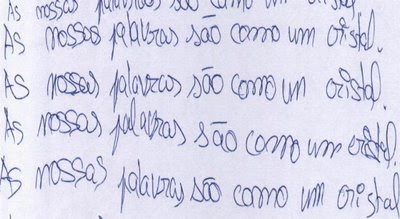 As nossas palavras são como um cristal
As nossas palavras são como um cristal.
As nossas palavras são como um cristal.
As nossas palavras são como um cristal.
As nossas palavras são como um cristal